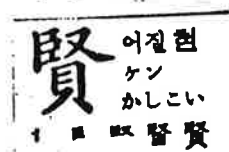 賢
어질 현
ケン
かしこい
臤 賢